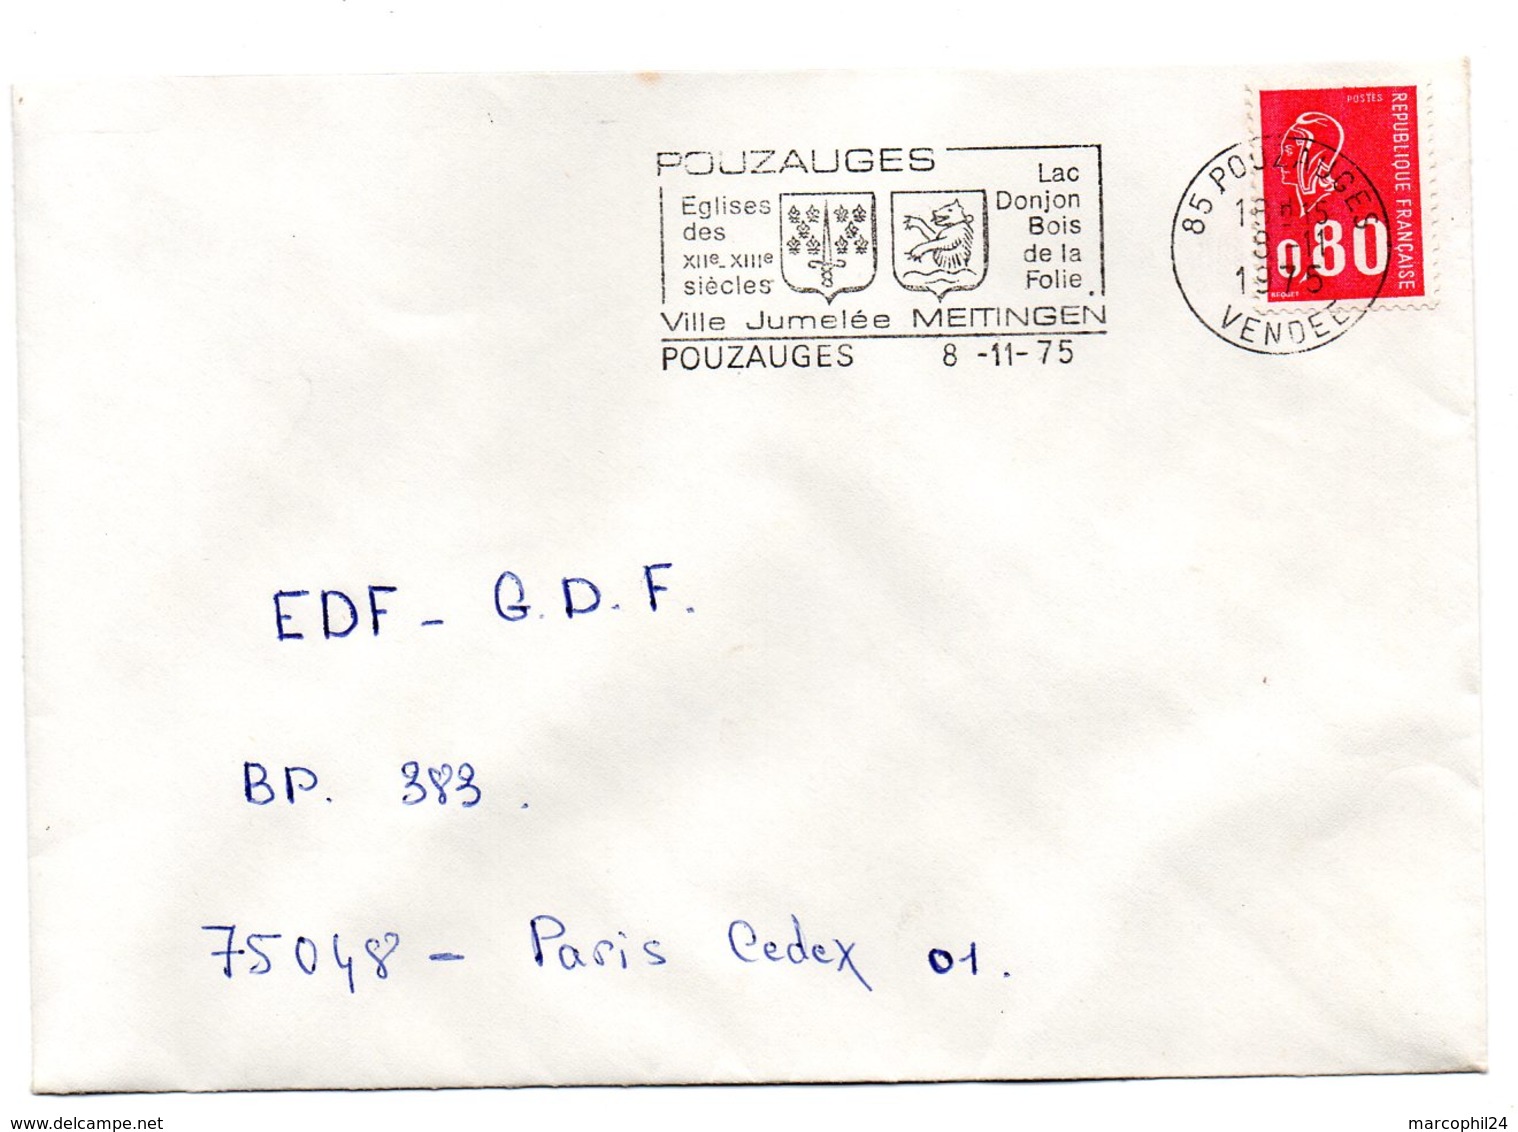 POUZAUGES
Eglises
des
XIIe_XIIIe
siècles
Lac
Donjon
Bois
de la
Folie
Ville Jumelée MEITINGEN
POUZAUGES 8 -11- 75
85 POUZAUGES
8 -11
1975
VENDEE
POSTES
REPUBLIQUE FRANÇAISE
0,80
BEQUET
EDF - G.D.F.
BP. 383.
75048 - Paris Cedex 01.
delcampe.net
marcophil24